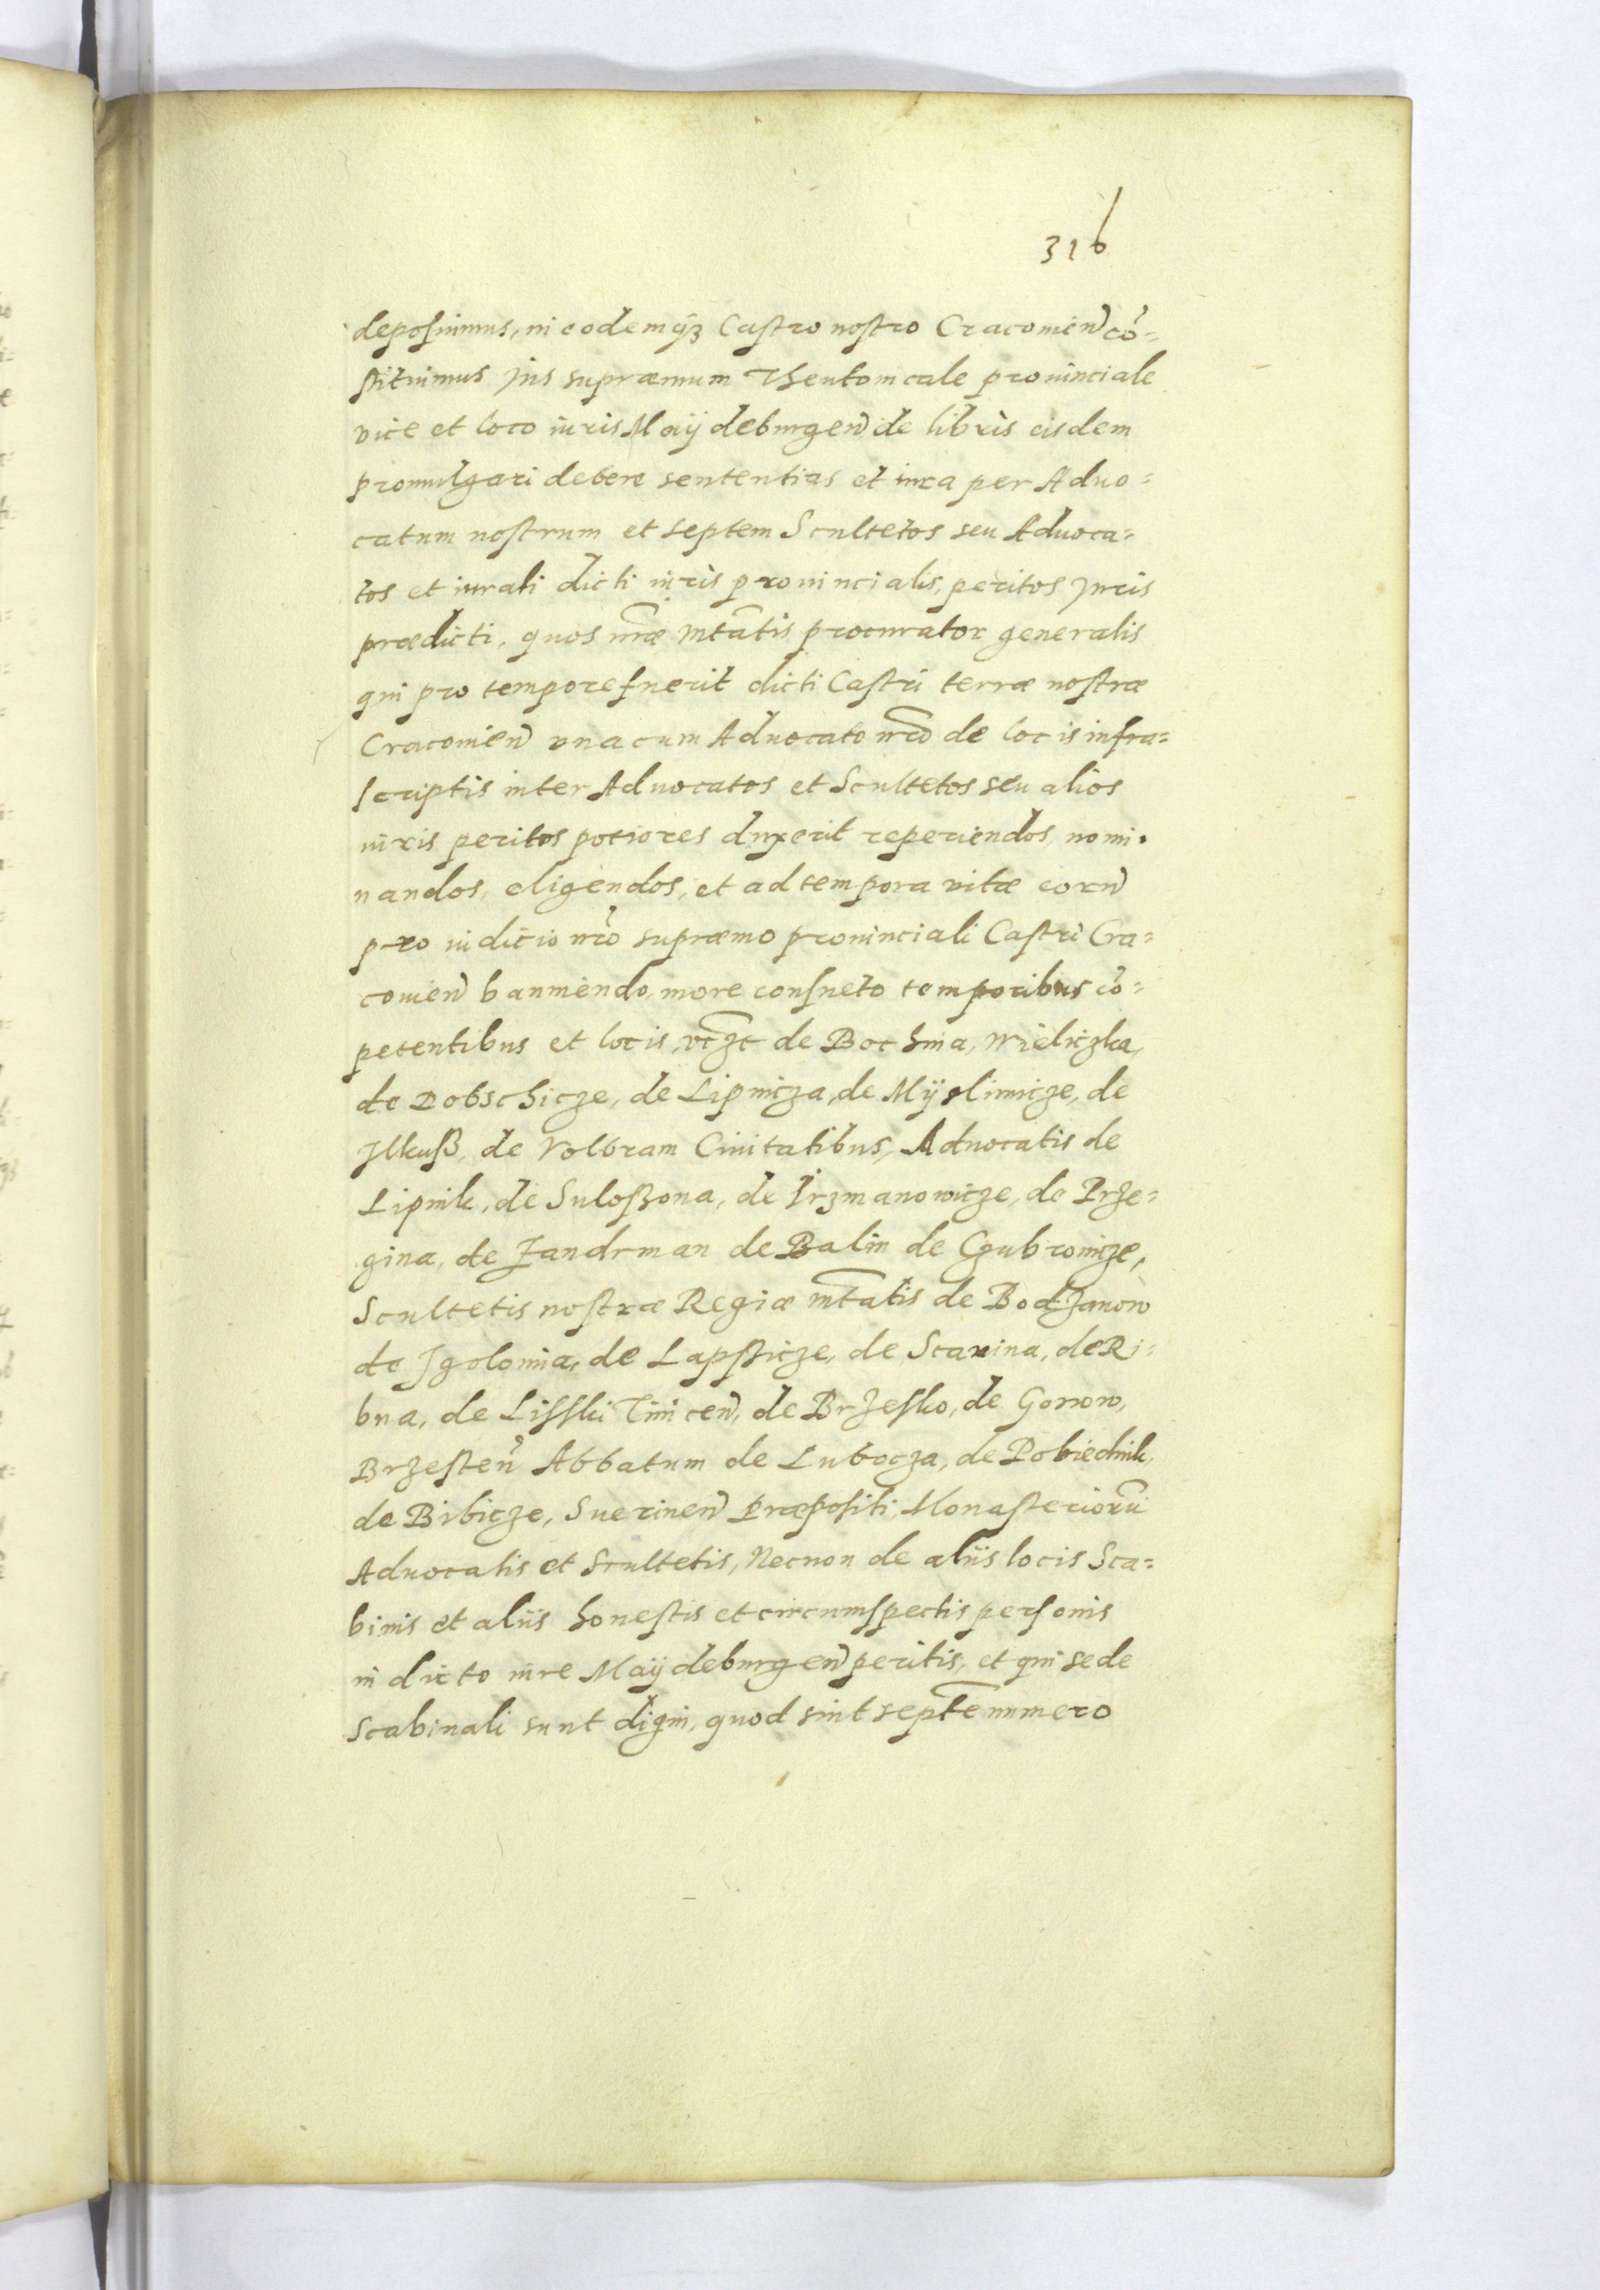 316
deposuimus, in eodemq́ȝ Castro nostro Cracouien̄ cō=
stituimus Jus supraemum Theutonicale prouinciale
vice et loco iuris Maÿdeburgen̄ de libris eisdem
promulgari debere sententias et iura per Aduo=
catum nostrum et septem Scultetos seu Aduoca=
tos et iurati dicti iuris prouincialis, peritos Juris
praedicti, quos nr̄ae Mtāatis procurator generalis
qui pro tempore fuerit dicti Castri terrae nostrae
Cracouien̄ vna cum Aduocato nr̄o de locis infra=
scriptis inter Aduocatos et Scultetos seu alios
iuris peritos potiores duxerit reperiendos, nomi=
nandos, eligendos, et ad tempora vitae eorū
pro iudicio nr̄o supraemo prouinciali Castri Cra=
couien̄ banniendo, more consueto temporibus cō=
petentibus et locis, vcȝt de Bochnia, Wieliczka,
de Dobschicze, de Lipnicza, de Mÿslimicze, de
Jlkusß, de Volbram Ciuitatibus, Aduocatis de
Lipnik, de Sulosßona, de Jrzmanowicze, de Prze=
gina, de Zandrman de Balin de Czubrowicze,
Scultetis nostrae Regiae Mtāatis de Bodzanow
de Jgolomia, de Lapsticze, de Scawina, de Ri=
bna, de Lisski Tinicen̄, de Brzesko, de Gorrow,
Brzesten̄ Abbatum de Lubocza, de Pobiednik,
de Bibicze, Suerinen̄ Praepositi, Monasteriorū
Aduocatis et Scultetis, Necnon de aliis locis Sca=
binis et aliis honestis et circumspectis personis
in dicto iure Maÿdeburgen̄ peritis, et qui sede
Scabinali sunt digni, quod sint septē numero